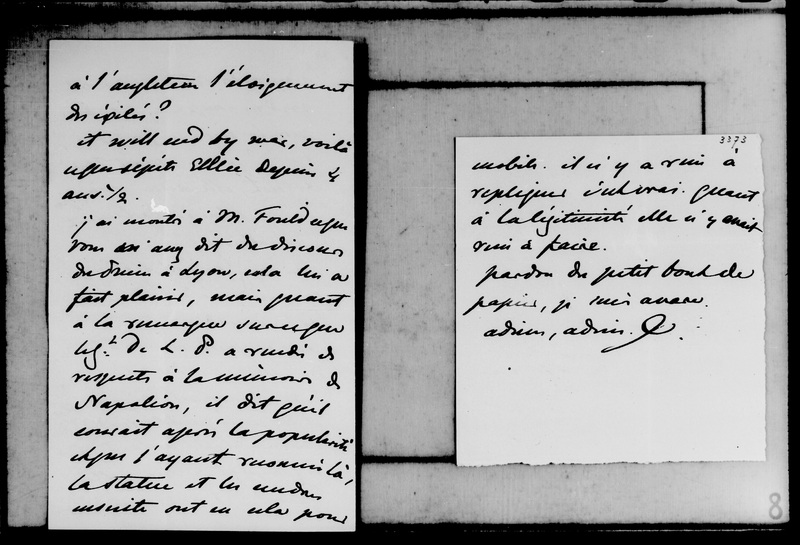 à l'angleterre l'éloignement
des exilés?
it will end by war, voilà
ce que répète Ellice depuis 4
ans 1/2.
j'ai montré à M. Fould ce que
vous m'avez dit du discours
du Prince à Lyon, cela lui a
fait plaisir, mais quant
à la remarque sur ce que
le g.t de L. P. a rendu de
respects à la mémoire de
Napoléon, il dit qu'il
courait après la popularité
et que l'ayant reconnu là,
la statue et les cendres
ensuite ont eu cela pour
3373
mobile. il n'y a rien à
repliquer c'est vrai. quant
à la légitimité elle n'y avait
rien à faire.
pardon du petit bout de
papier, je suis avare.
adieu, adieu.
8